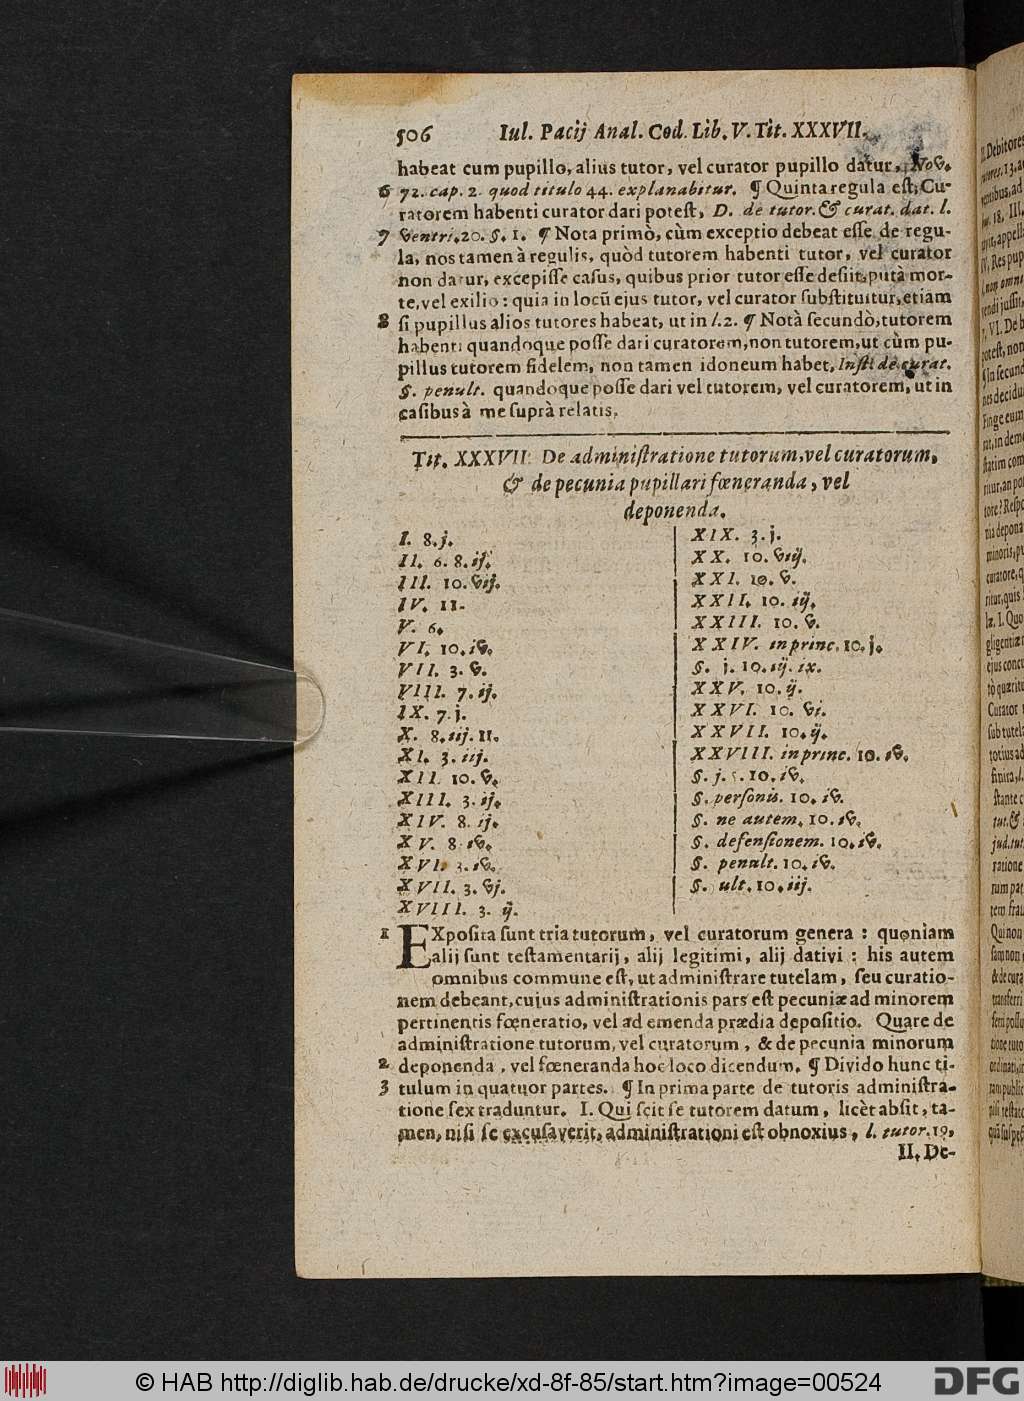 506 Iul. Pacij Anal. Cod. Lib. V. Tit. XXXVII.
habeat cum pupillo, alius tutor, vel curator pupillo datur, Nov.
6 72. cap. 2. quod titulo 44. explanabitur. ¶ Quinta regula est, Cu-
ratorem habenti curator dari potest, D. de tutor. & curat. dat. l.
7 ventri. 20. §. 1. ¶ Nota primò, cùm exceptio debeat esse de regu-
la, nos tamen à regulis, quòd tutorem habenti tutor, vel curator
non datur, excepisse casus, quibus prior tutor esse desiit, putà mor-
te, vel exilio: quia in locũ ejus tutor, vel curator substituitur, etiam
8 si pupillus alios tutores habeat, ut in l. 2. ¶ Notà secundò, tutorem
habenti quandoque posse dari curatorem, non tutorem, ut cùm pu-
pillus tutorem fidelem, non tamen idoneum habet, Inst. de curat.
§. penult. quandoque posse dari vel tutorem, vel curatorem, ut in
casibus à me suprà relatis.
Tit. XXXVII. De administratione tutorum, vel curatorum,
& de pecunia pupillari fœneranda, vel
deponenda.
I. 8. j.
II. 6. 8. ij.
III. 10. vij.
IV. 11.
V. 6.
VI. 10. iv.
VII. 3. v.
VIII. 7. ij.
IX. 7. j.
X. 8. iij. 11.
XI. 3. iij.
XII. 10. v.
XIII. 3. ij.
XIV. 8. ij.
XV. 8. iv.
XVI. 3. iv.
XVII. 3. vj.
XVIII. 3. ij.
XIX. 3. j.
XX. 10. viij.
XXI. 10. v.
XXII. 10. iij.
XXIII. 10. v.
XXIV. in princ. 10. j.
§. j. 10. iij. ix.
XXV. 10. ij.
XXVI. 10. vi.
XXVII. 10. ij.
XXVIII. in princ. 10. iv.
§. j. 5. 10. iv.
§. personis. 10. iv.
§. ne autem. 10. iv.
§. defensionem. 10. iv.
§. penult. 10. iv.
§. ult. 10. iij.
1 EXposita sunt tria tutorum, vel curatorum genera: quoniàm
alij sunt testamentarij, alij legitimi, alij dativi: his autem
omnibus commune est, ut administrare tutelam, seu curatio-
nem debeant, cuius administrationis pars est pecuniæ ad minorem
pertinentis fœneratio, vel ad emenda prædia depositio. Quare de
administratione tutorum, vel curatorum, & de pecunia minorum
2 deponenda, vel fœneranda hoc loco dicendum. ¶ Divido hunc ti-
3 tulum in quatuor partes. ¶ In prima parte de tutoris administra-
tione sex traduntur. I. Qui scit se tutorem datum, licèt absit, ta-
men, nisi se excusaverit, administrationi est obnoxius, l. tutor. 19,
II. De-
© HAB http://diglib.hab.de/drucke/xd-8f-85/start.htm?image=00524
DFG